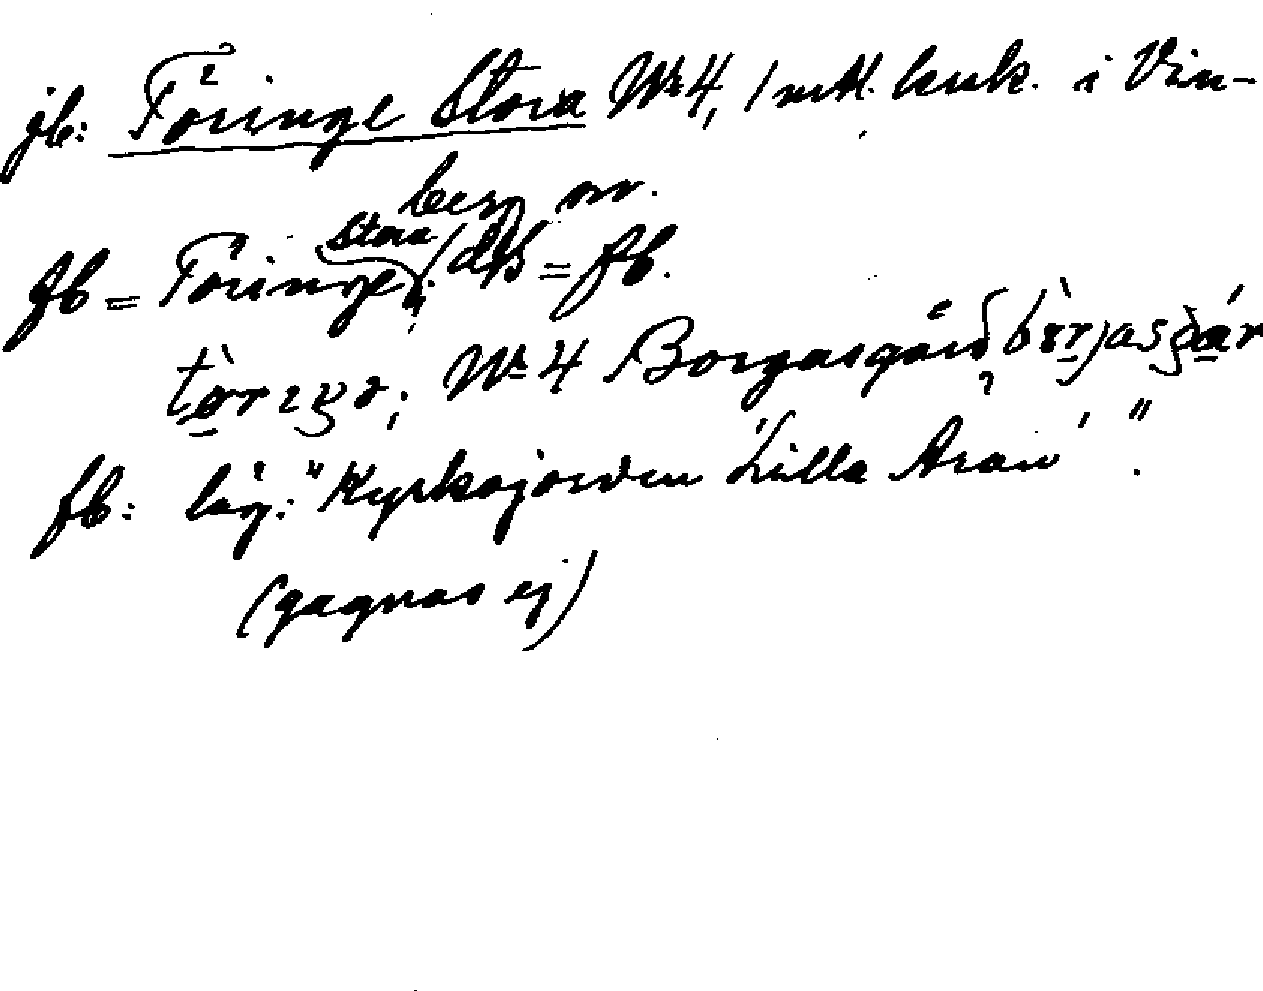 jb: Töringe Stora No 4, 1 mtl. krák. i Vin-
berg sn.
fb = Töringe, Stora; dB = fb.
No 4 Borgasgård
fb: läg: "Kyrkojorden Lilla Aran".
(gagnas ej)